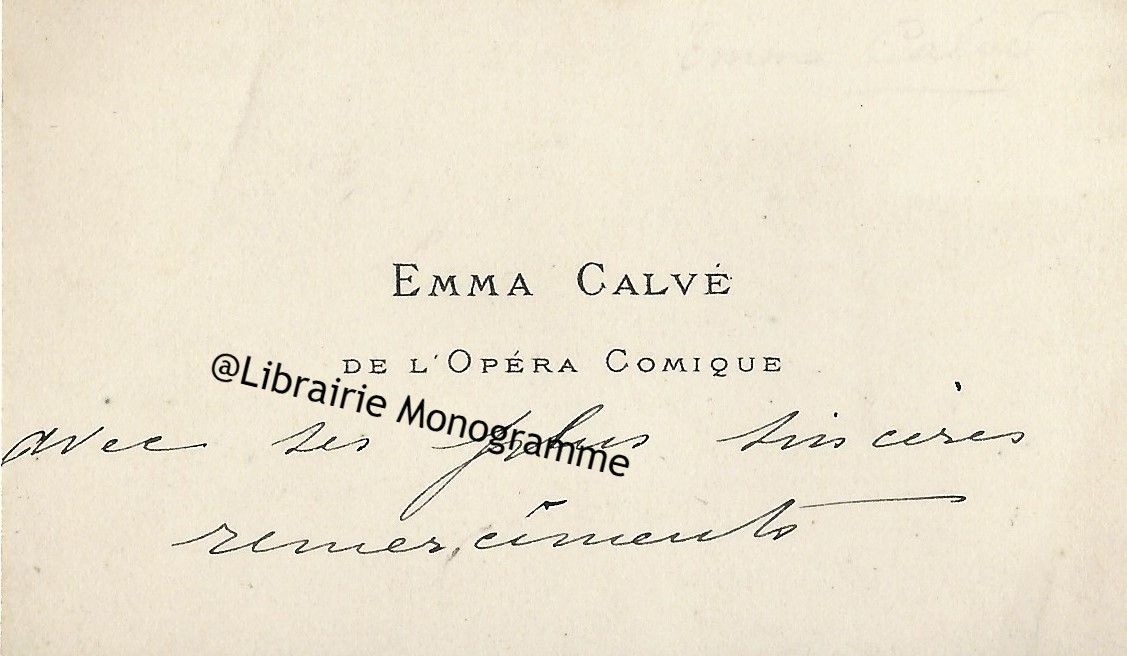 Emma Calvé
EMMA CALVÉ
DE L'OPÉRA COMIQUE
@Librairie Monogramme
avec ses plus sincères
remerciments